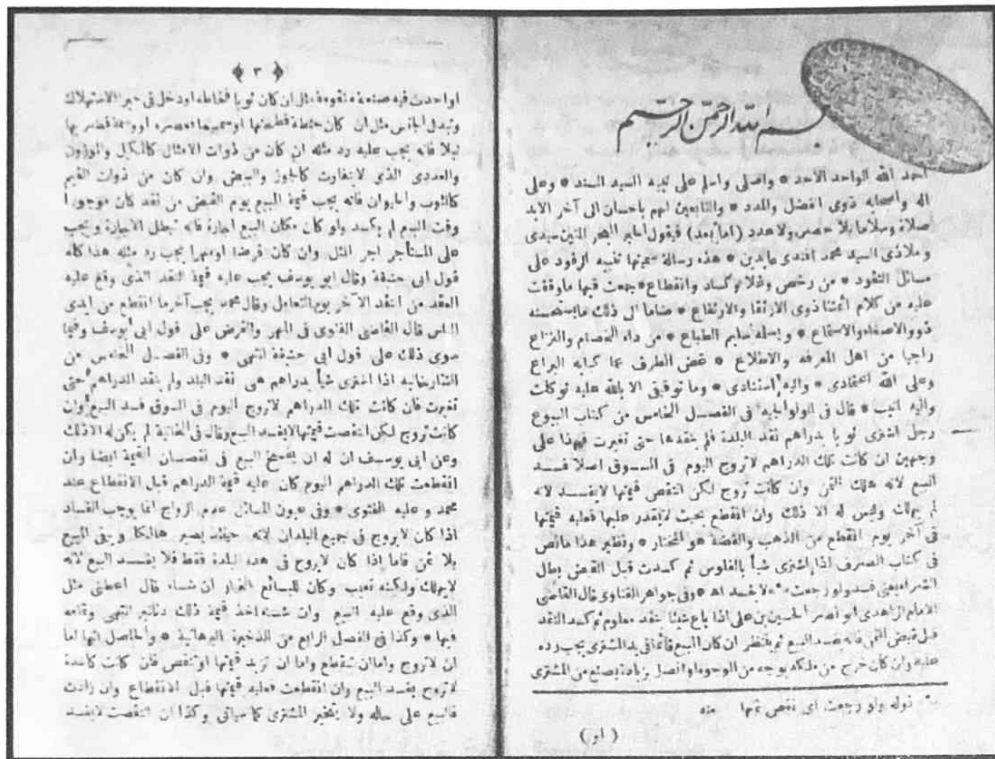 بسم الله الرحمن الرحيم
الحمد لله الواحد الأحد * واصلى واسلم على نبيه السيد السند * وعلى
اله وأصحابه ذوى الفضل والمدد * والتابعين لهم باحسان الى آخر الابد
صلاة وسلاما بلا حصر ولا عدد (اما بعد) فيقول
السيد محمد افندى عابدين * هذه رسالة سميتها تنبيه الرقود على
مسائل النقود * من رخص وغلا وكساد وانقطاع * جمعت فيها ما وقفت
عليه من كلام أئمتنا ذوى الارتقا والارتفاع * ضاما الى ذلك ما يستحسنه
ذوو الاصغاء والاستماع * سليم الطباع * من داء الخصام والنزاع
راجيا من اهل المعرفه والاطلاع * غض الطرف عما كبابه اليراع
وعلى الله اعتمادى * واليه استنادى * وما توفيقى الا بالله عليه توكلت
واليه انيب * قال فى الولوالجيه فى الفصل الخامس من كتاب البيوع
رجل اشترى ثوبا بدراهم نقد البلدة فلم ينقدها حتى تغيرت فهذا على
وجهين ان كانت تلك الدراهم لاتروج اليوم فى السوق اصلا فسد
البيع لانه هلك الثمن وان كانت تروج لكن انتقص قيمتها لايفسد لانه
لم يهلك وليس له الا ذلك وان انقطع بحيث لايقدر عليها فعليه قيمتها
فى آخر يوم انقطع من الذهب والفضة هو المختار * ونظير هذا مانص
فى كتاب الصرف اذا اشترى شيأ بالفلوس ثم كسدت قبل القبض بطل
الشراء يعنى فسد ولو رجعت * لايفسد اه * وفى جواهر الفتاوى قال القاضى
الامام الزاهدى ابو نصر الحسين بن على اذا باع شيئا بنقد معلوم ثم كسد النقد
قبل قبض الثمن فانه يفسد البيع ثم ينظر ان كان المبيع قائما فى يد المشترى يجب رده
عليه وان كان خرج من ملكه بوجه من الوجوه او اتصل بزيادة بصنع من المشترى
قوله ولو رجعت اى نقص ثمنها منه
( او )
﴿ ٣ ﴾
او احدث فيه صنعة متقومة مثل ان كان ثوبا فخاطه او دخل فى حيز الاستهلاك
وتبدل الجنس مثل ان كان حنطة فطحنها او سمسما فعصره او وسمة فضربها
نيلا فانه يجب عليه رد مثله ان كان من ذوات الامثال كالمكيل والموزون
والعددى الذى لايتفاوت كالجوز والبيض وان كان من ذوات القيم
كالثوب والحيوان فانه يجب قيمة المبيع يوم القبض من نقد كان موجودا
وقت البيع لم يكسد ولو كان مكان البيع اجارة فانه تبطل الاجارة ويجب
على المستأجر اجر المثل وان كان قرضا او مهرا يجب رد مثله هذا كله
قول ابى حنيفة وقال ابو يوسف يجب عليه قيمة النقد الذى وقع عليه
العقد من النقد الآخر يوم التعامل وقال محمد يجب آخر ما انقطع من ايدى
الناس قال القاضى الفتوى فى المهر والقرض على قول ابى يوسف وفيما
سوى ذلك على قول ابى حنيفة انتهى * وفى الفصل الخامس من
التتارخانيه اذا اشترى شيأ بدراهم هى نقد البلد ولم ينقد الدراهم حتى
تغيرت فان كانت تلك الدراهم لاتروج اليوم فى السوق فسد البيع وان
كانت تروج لكن انتقصت قيمتها لايفسد البيع وقال فى الخانية لم يكن له الا ذلك
وعن ابى يوسف ان له ان يفسخ البيع فى نقصان القيمة ايضا وان
انقطعت تلك الدراهم اليوم كان عليه قيمة الدراهم قبل الانقطاع عند
محمد وعليه الفتوى * وفى عيون المسائل عدم الرواج انما يوجب الفساد
اذا كان لايروج فى جميع البلدان لانه حينئذ يصير هالكا ويبقى المبيع
بلا ثمن فاما اذا كان لايروج فى هذه البلدة فقط فلا يفسد البيع لانه
لايهلك ولكنه تعيب وكان للبائع الخيار ان شاء قال اعطنى مثل
الذى وقع عليه البيع وان شاء اخذ قيمة ذلك دنانير انتهى وتمامه
فيها * وكذا فى الفصل الرابع من الذخيرة البرهانية * والحاصل انها اما
ان لاتروج واما ان تنقطع واما ان تزيد قيمتها او تنقص فان كانت كاسدة
لاتروج يفسد البيع وان انقطعت فعليه قيمتها قبل الانقطاع وان زادت
فالبيع على حاله ولا يتخير المشترى كما سيأتى وكذا ان انتقصت لايفسد